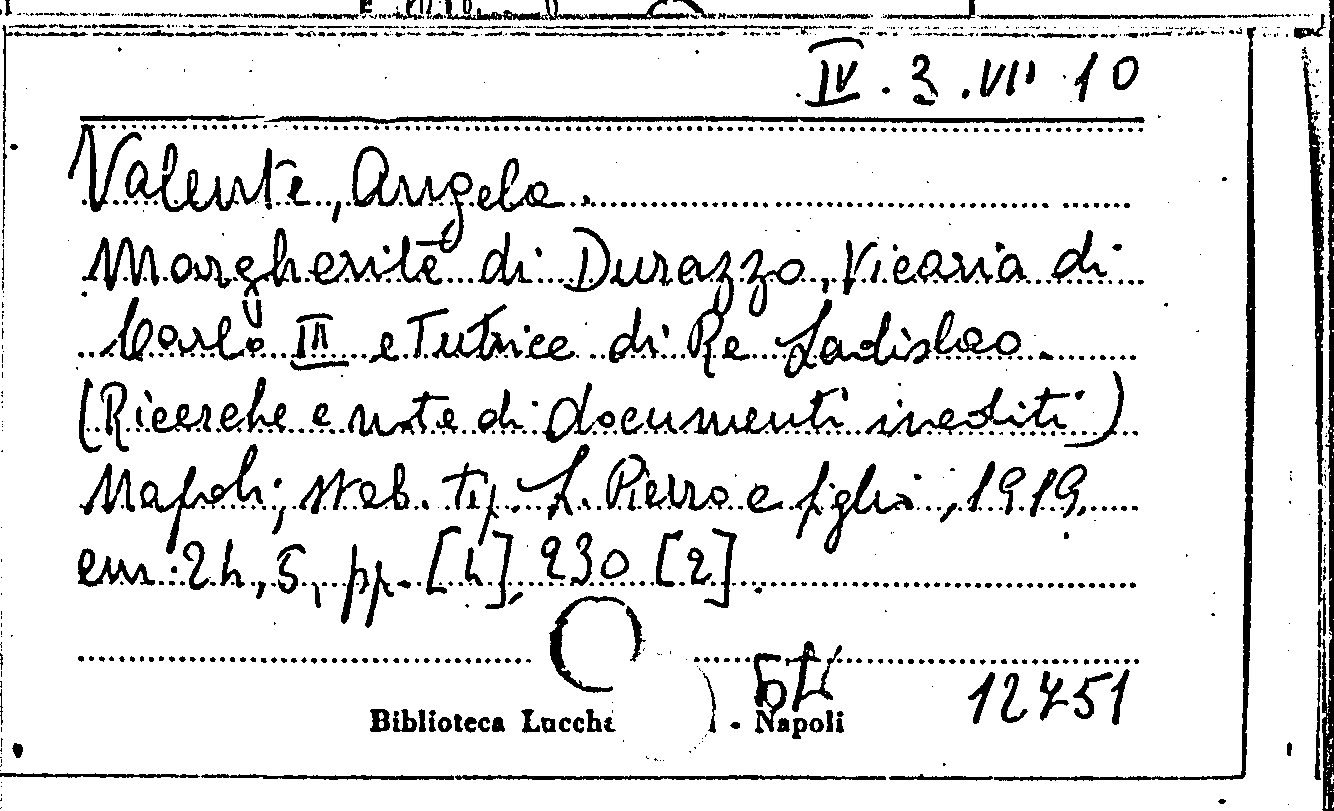 IV. 3. VII 10
Valente, Angela.
Margherita di Durazzo, Vicaria di
Carlo III e Tutrice di Re Ladislao.
(Ricerche e note di documenti inediti)
Napoli; stab. tip. L. Pierro e figlio, 1919,
cm. 24,5, pp. [4], 230 [2].
12751
Biblioteca - Napoli